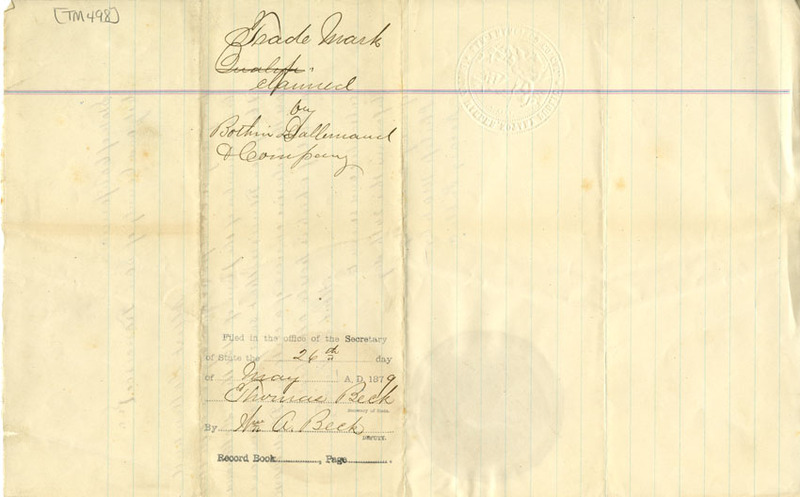 [TM 498]
Trade Mark
claimed
by
Bothin Dallemand
& Company
Filed in the office of the Secretary
of State the 26th day
of May A.D. 1879
Thomas Beck
Secretary of State.
By Wm A. Beck
DEPUTY.
Record Book ........, Page ........